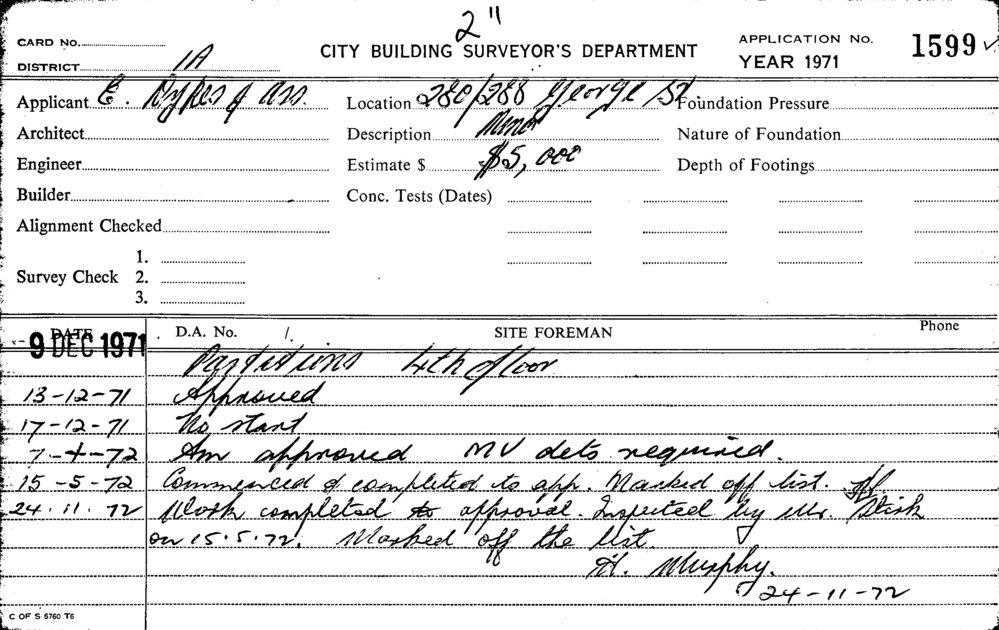 2"
CARD No.
CITY BUILDING SURVEYOR'S DEPARTMENT
APPLICATION No. 1599
DISTRICT 1A
YEAR 1971
Applicant E. Dykes & Ass. Location 280/288 George St. Foundation Pressure
Architect Description Minor Nature of Foundation
Engineer Estimate $ $5,000 Depth of Footings
Builder Conc. Tests (Dates)
Alignment Checked
1.
Survey Check 2.
3.
DATE D.A. No. /. SITE FOREMAN Phone
-9 DEC 1971
Partitions 4th floor
13-12-71 Approved
17-12-71 No start
7-4-72 Am approved MV dets required.
15-5-72 Commenced & completed to app. Marked off list.
24.11.72 Work completed to approval. Inspected by Mr.
on 15.5.72. Marked off the list.
H. Murphy.
24-11-72
C OF S 6760 T6